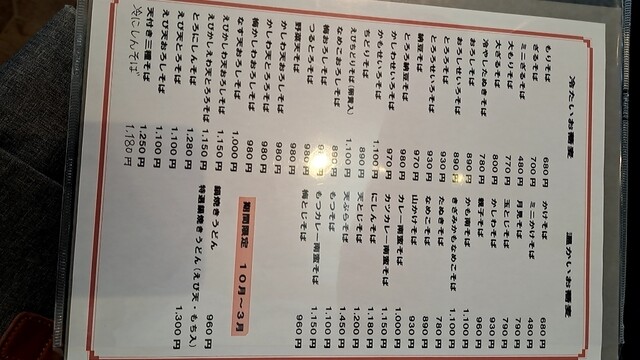 冷たいお蕎麦
もりそば 680円
ざるそば 700円
ミニざるそば 480円
大もりそば 770円
大ざるそば 800円
冷やしたぬきそば 780円
おろしそば 890円
おろしせいろそば 890円
とろろそば 930円
とろろせいろそば 930円
納豆そば 970円
とろろ納豆そば 980円
かしわせいろそば 970円
かもせいろそば 1,100円
ちどりそば 890円
えびちとりそば 1,100円
なめこおろしそば 890円
梅おろしそば
つるとろそば 980円
野菜天そば 980円
かしわ天おろしそば 980円
かしわ天とろろそば 980円
梅かしわおろしそば 980円
なす天おろしそば 1,000円
えびかしわ天おろしそば 1,150円
えびかしわえ天とろろそば 1,150円
とろろにしんそば 1,280円
えび天とろろそば 1,100円
えび天おろしそば 1,100円
天付き三種そば 1,250円
冷にしんそば 1,180円
温かいお蕎麦
かけそば 680円
ミニかけそば 480円
月見そば 790円
玉とじそば 790円
かしわそば 930円
親子そば 960円
かも南そば 1,100円
きざみかもなめこそば 1,100円
たぬきそば 780円
なめこそば 890円
山かけそば 930円
カレー南蛮そば 1,000円
カツカレー南蛮そば 1,150円
にしんそば 1,180円
天とじそば 1,200円
天ぷらそば 1,450円
もつそば 1,100円
もつカレー南蛮そば 1,150円
梅とじそば 960円
期間限定 10月～3月
鍋焼きうどん 960円
特選鍋焼きうどん(えび天・もち入) 1,300円